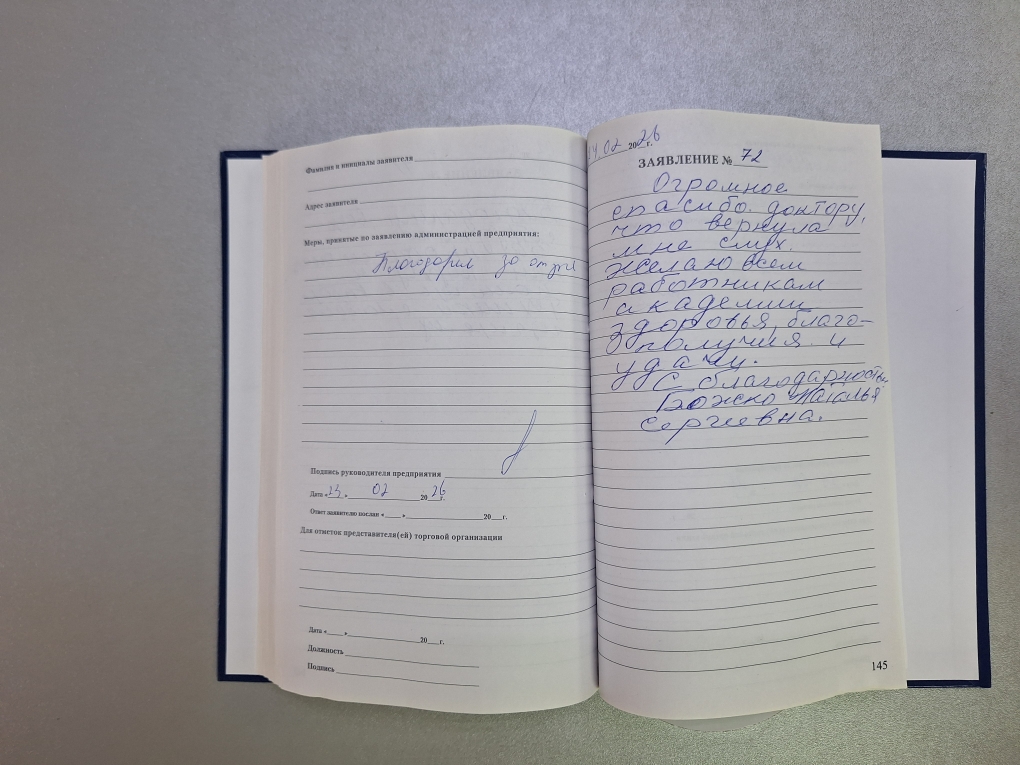 Фамилия и инициалы заявителя
Адрес заявителя
Меры, принятые по заявлению администрацией предприятия:
Благодарим за отзыв
Подпись руководителя предприятия
Дата «13» 02 2026 г.
Ответ заявителю послан « » 20 г.
Для отметок представителя(ей) торговой организации
Дата « » 20 г.
Должность
Подпись
14.02 2026 г.
ЗАЯВЛЕНИЕ № 72
Огромное
спасибо доктору,
что вернула
мне слух.
Желаю всем
работникам
академии
здоровья, благо-
получия и
удачи.
С благодарностью
Божко Наталья
Сергеевна.
145